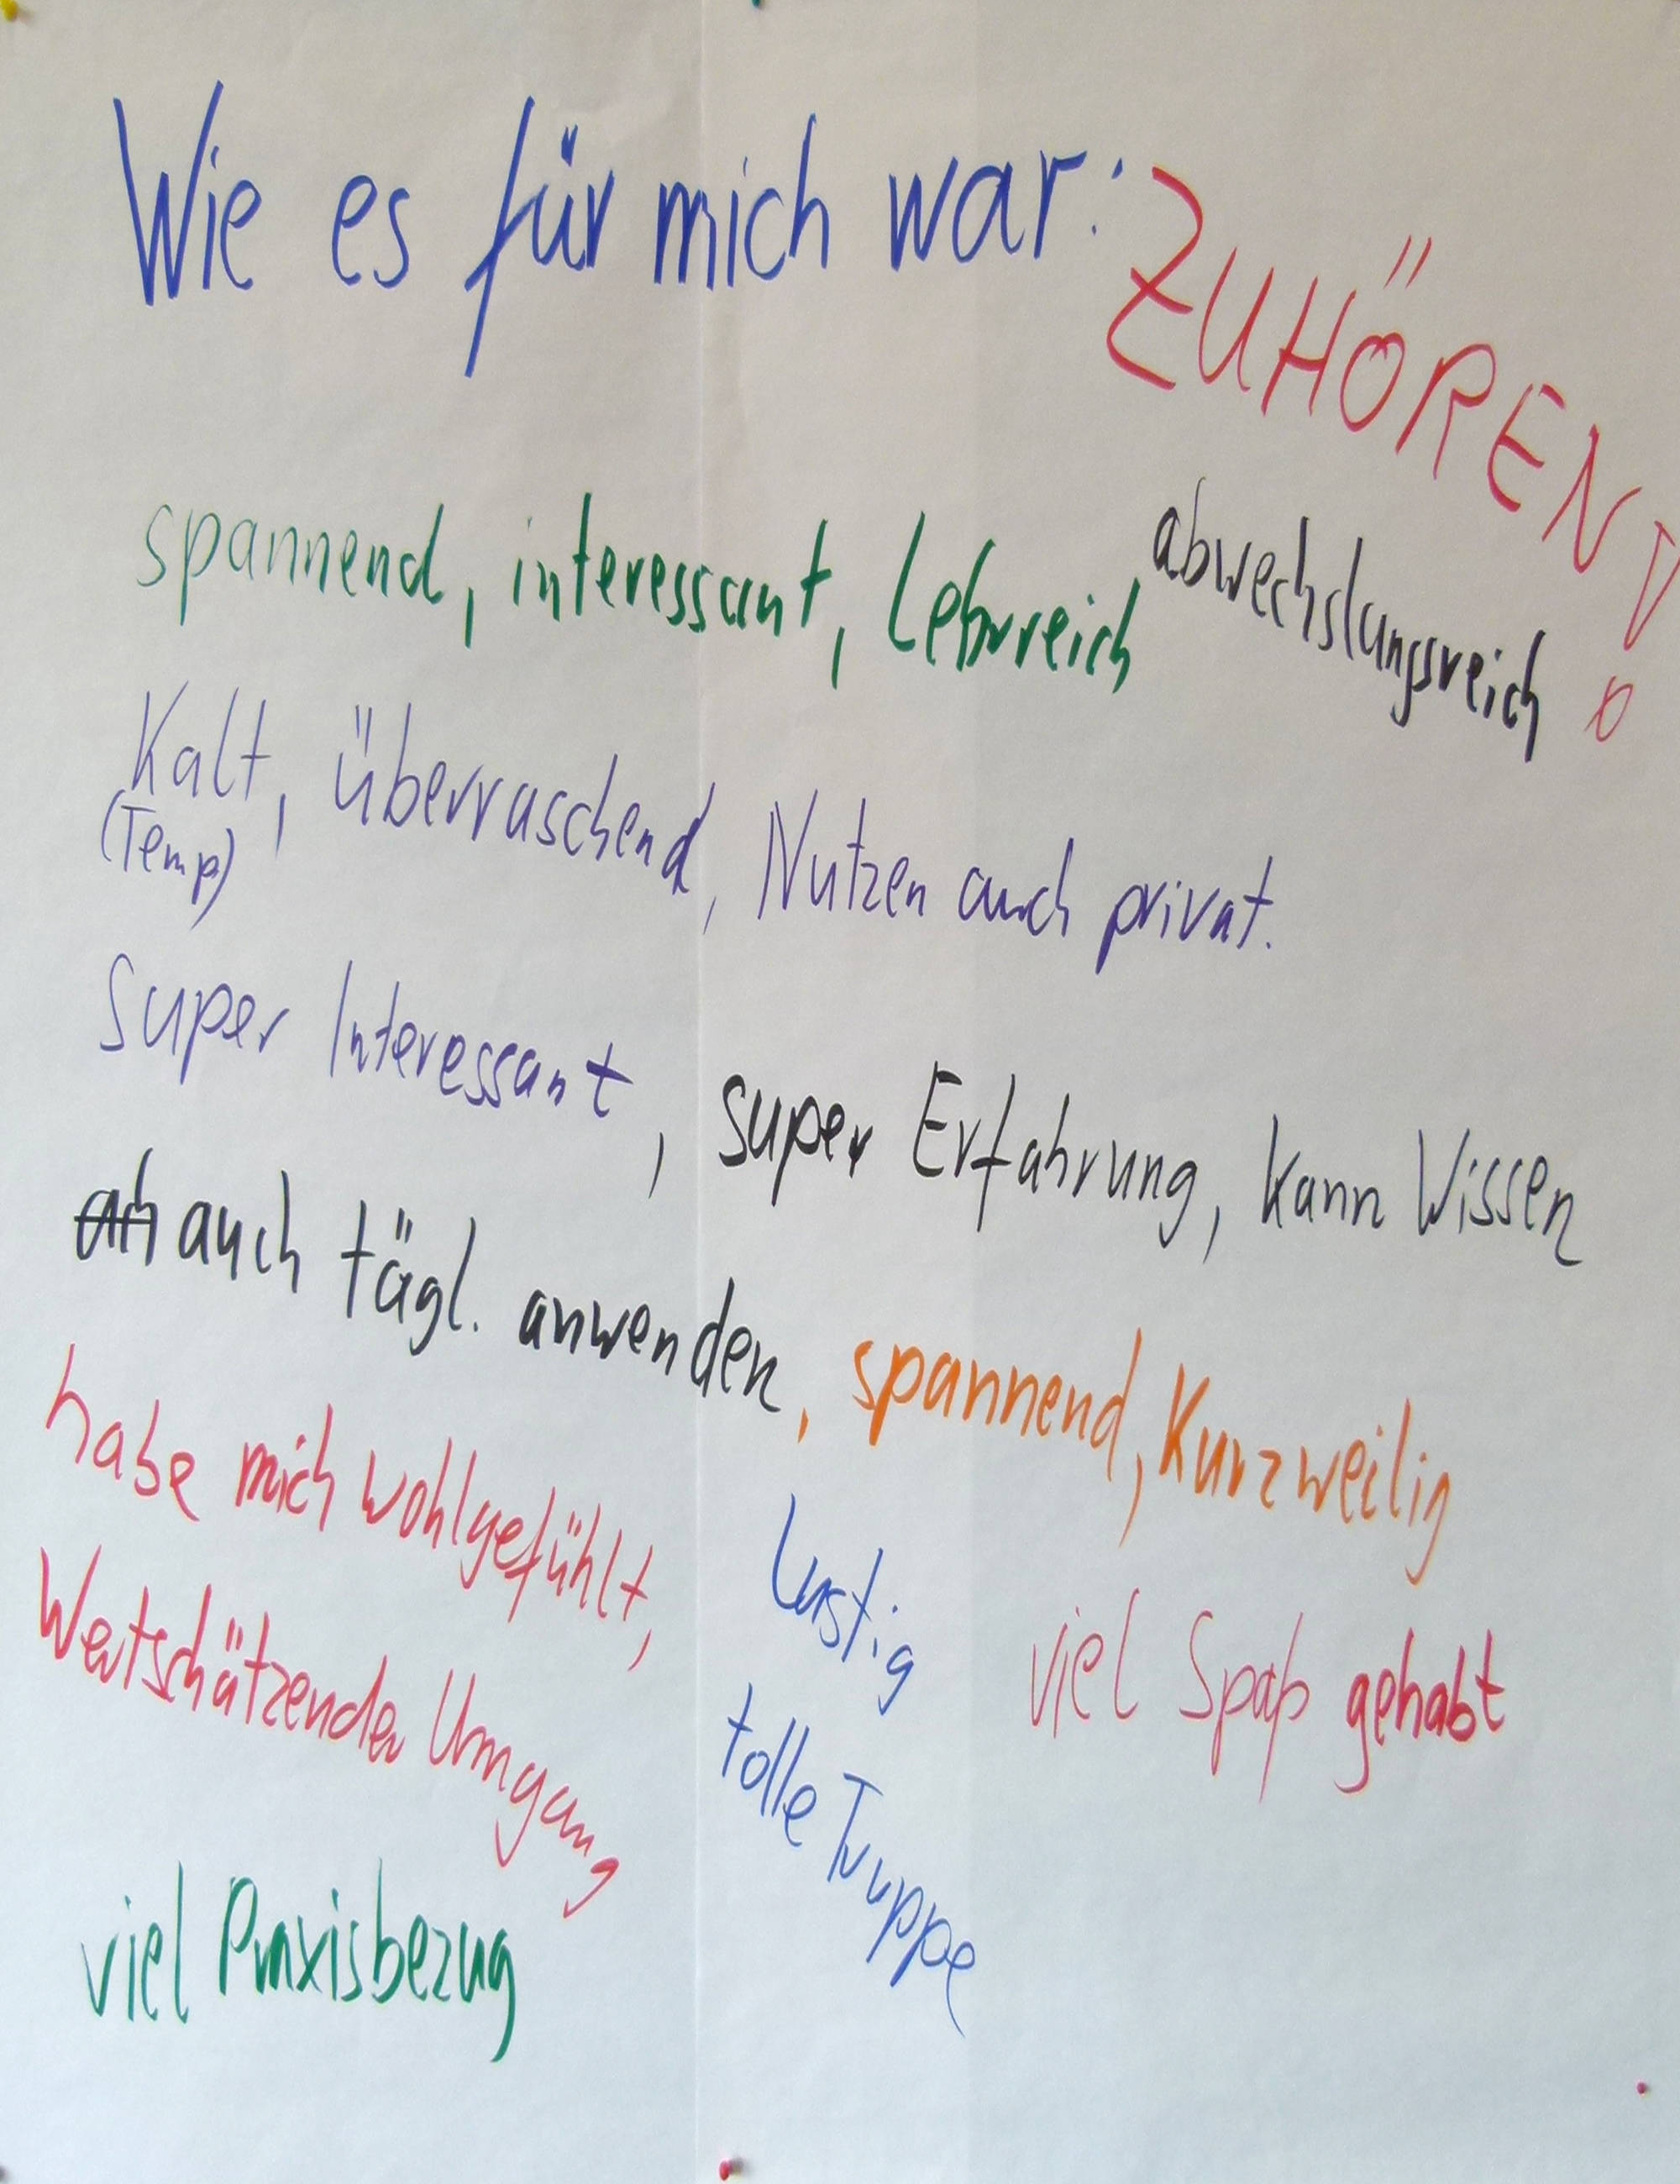 Wie es für mich war:
ZUHÖREN!
spannend, interessant, Lehrreich
abwechslungsreich
Kalt, überraschend, Nutzen auch privat.
(Temp)
Super Interessant, super Erfahrung, kann Wissen
auch tägl. anwenden, spannend, Kurzweilig
habe mich wohlgefühlt,
Wertschätzender Umgang
Lustig
viel Spaß gehabt
tolle Truppe
viel Praxisbezug